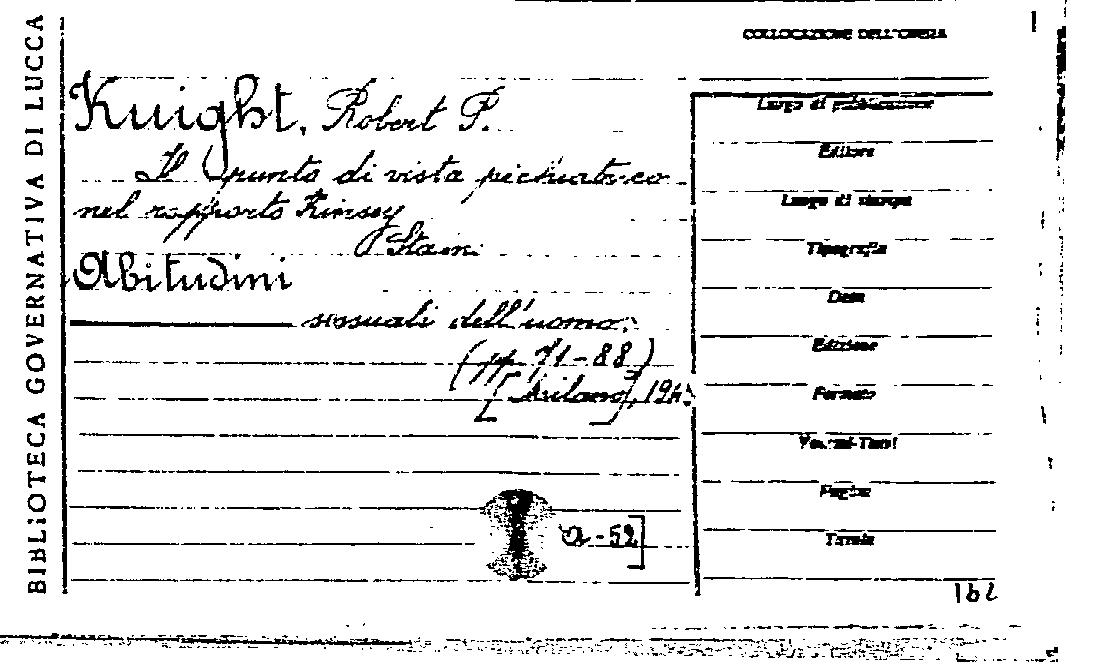 BIBLIOTECA GOVERNATIVA DI LUCCA
COLLOCAZIONE DELL'OPERA
Knight, Robert P.
Il punto di vista pichiatrico
nel rapporto Kinsey
Sta in:
Abitudini
sessuali dell'uomo,
(pp. 71-88)
[Milano],
a-52]
Luogo di pubblicazione
Editore
Luogo di stampa
Tipografia
Data
Edizione
Formato
Volumi-Tomi
Pagine
Tavole
162